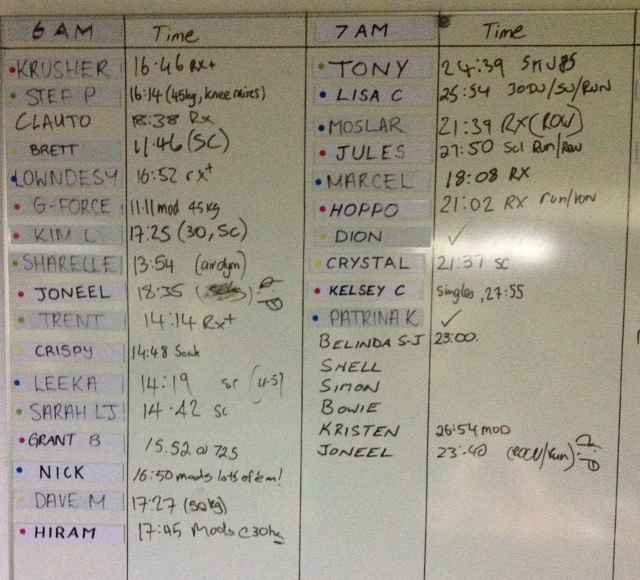 6 AM Time
KRUSHER 16:46 RX+
STEF P 16:14 (45kg, knee mixes)
CLAUTO 18:38 Rx
BRETT 11:46 (SC)
LOWNDESY 16:52 rx+
G-FORCE 11:11 mod 45kg
KIM L 17:25 (30, SC)
SHARELLE 13:54 (airdyn)
JONEEL 18:35
TRENT 14:14 Rx+
CRISPY 14:48
LEEKA 14:19 SC
SARAH LJ 14:42 SC
GRANT B 15.52 @ 72.5
NICK 16:50 mods lots of em!
DAVE M 17:27 (50kg)
HIRAM 17:45 Mods C 30kg
7 AM Time
TONY 24:39
LISA C 25:54 30DU/SU/RUN
MOSLAR 21:39 RX (ROW)
JULES 27:50 Scl Run/Row
MARCEL 18:08 RX
HOPPO 21:02 RX run/row
DION ✓
CRYSTAL 21:37 SC
KELSEY C singles, 27:55
PATRINA K ✓
BELINDA S-J 23:00.
SHELL
SIMON
BOWIE
KRISTEN 26:54 MOD
JONEEL 23:40 (ROW/run)